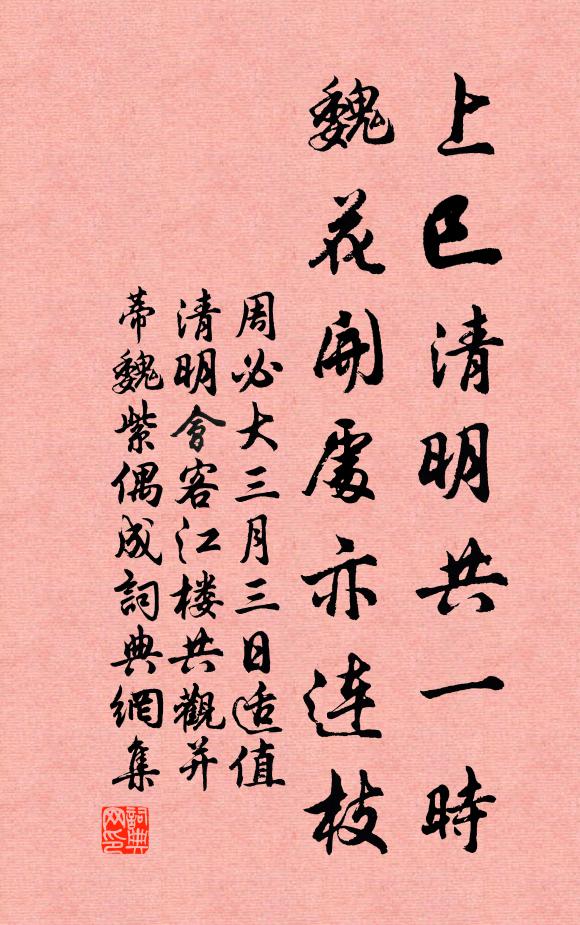 上巳清明共一時
魏花開處亦连枝
周必大三月三日适值
清明會客江楼共觀并
蒂魏紫偶成詞典網集
詞典
网印